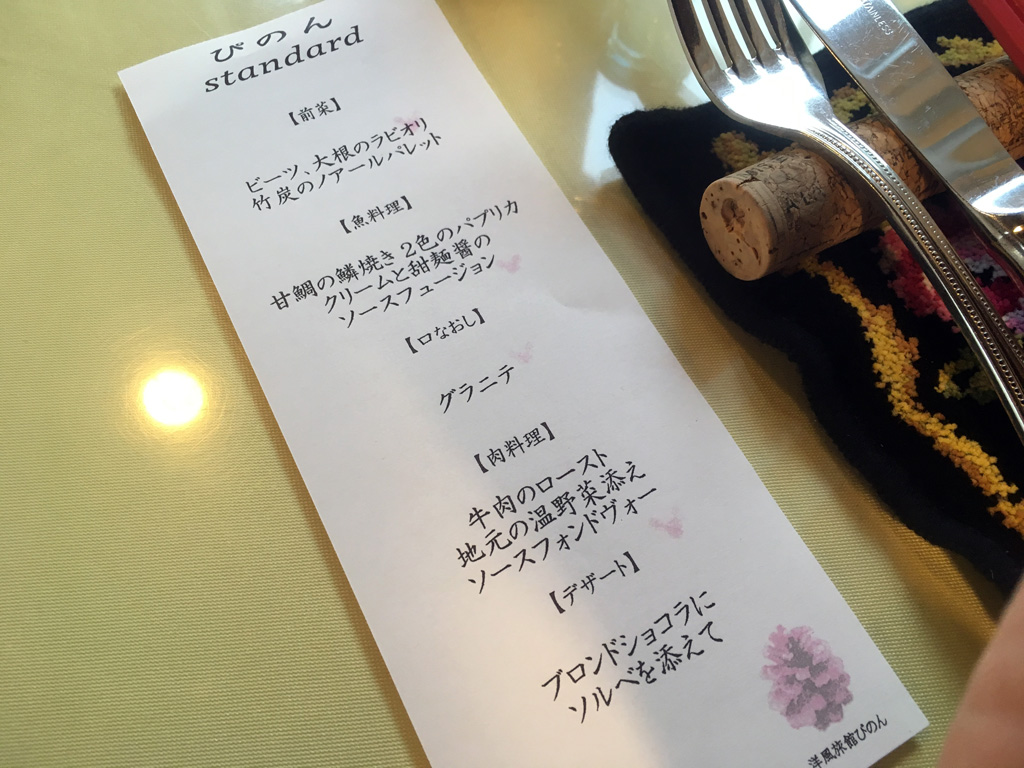 ぴのん
standard
【前菜】
ビーツ、大根のラビオリ
竹炭のノアールパレット
【魚料理】
甘鯛の鱗焼き 2色のパプリカ
クリームと甜麺醤の
ソースフュージョン
【口なおし】
グラニテ
【肉料理】
牛肉のロースト
地元の温野菜添え
ソースフォンドヴォー
【デザート】
ブロンドショコラに
ソルベを添えて
洋風旅館ぴのん